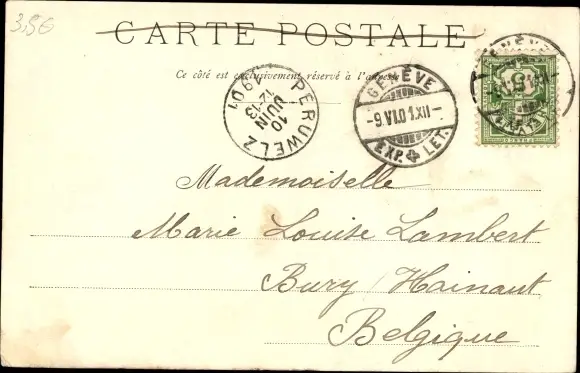 3,50
CARTE POSTALE
Ce côté est exclusivement réservé à l'adresse
PERUWELZ
10
JUIN
12-13
1901
GENÈVE
-9.VI.01.XII-
EXP. LET.
GENÈVE
5
Mademoiselle
Marie Louise Lambert
Bury Hainaut
Belgique